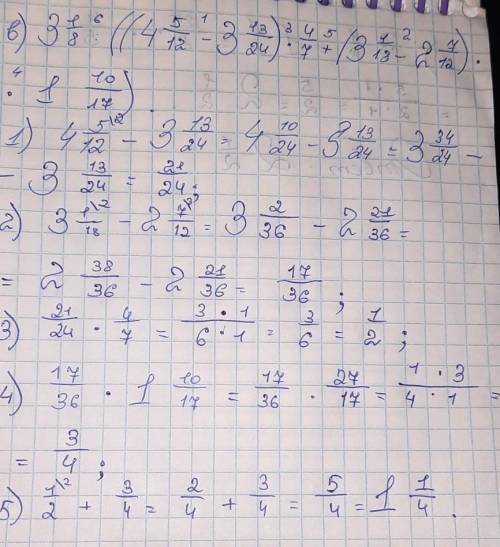 в) 3 1/8 :⁶ ((4 5/12 -¹ 3 13/24) ·³ 4/7 +⁵ (3 1/18 -² 2 7/12) ·
·⁴ 1 10/17).
1) 4 5\²/12 - 3 13/24 = 4 10/24 - 3 13/24 = 3 34/24 -
- 3 13/24 = 21/24;
2) 3 1\²/18 - 2 7\³/12 = 3 2/36 - 2 21/36 =
= 2 38/36 - 2 21/36 = 17/36;
3) 21/24 · 4/7 = 3·1/6·1 = 3/6 = 1/2;
4) 17/36 · 1 10/17 = 17/36 · 27/17 = 1·3/4·1 =
= 3/4;
5) 1\²/2 + 3/4 = 2/4 + 3/4 = 5/4 = 1 1/4.